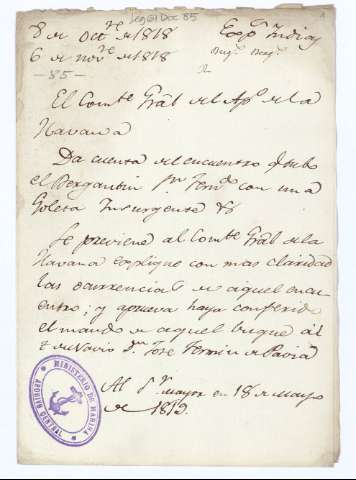 Leg 9 Doc 85
1
8 de Octre de 1818
Expn Indias
6 de Novre de 1818
Buqs Buqs
— 85 —
El Comte Gral del Apº de la
Havana
Da cuenta del encuentro q tubo
el Bergantin Sn Ferndo con una
Goleta Insurgente &
Se previene al Comte Gral de la
Havana explique con mas claridad
las ocurrencias de aquel encu
entro; y aprueva haya conferido
el mando de aquel buque al
Dn Jose Fermin de Pavia
MINISTERIO DE MARINA
ARCHIVO CENTRAL
Al Sr Mayor en 18 de Mayo
de 1819.